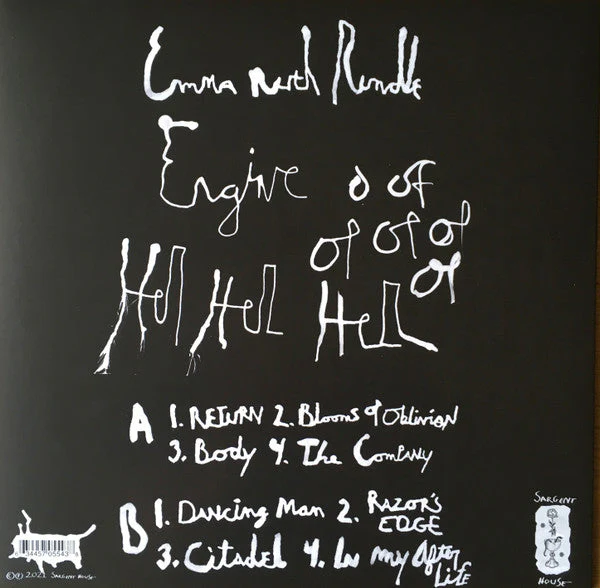 Emma Ruth Rundle
Engine o of
of of of
of
Hell Hell Hell
A 1. RETURN 2. Blooms of Oblivion
3. Body 4. The Company
B 1. Dancing Man 2. RAZOR'S
EDGE
3. Citadel 4. In my After
Life
34457 05543 8
©℗ 2021 SARGENT HOUSE
SARGENT
HOUSE